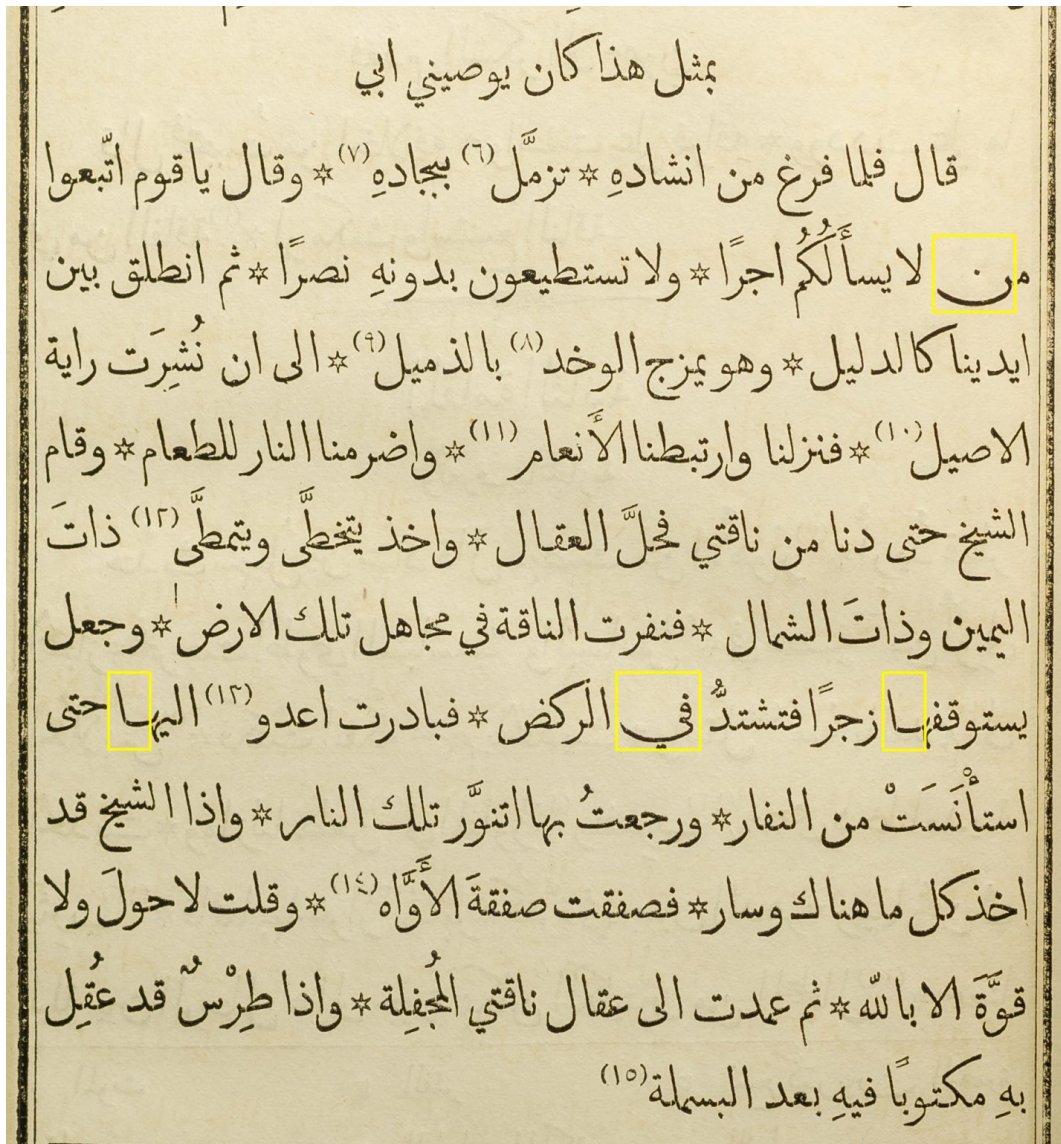 بمثل هذا كان يوصيني ابي
قال فلما فرغ من انشادهِ * تزمَّل (٦) ببجادهِ (٧) * وقال يا قوم اتّبعوا
من لا يسأَلُكُم اجرًا * ولا تستطيعون بدونهِ نصرًا * ثم انطلق بين
ايدينا كالدليل * وهو يمزج الوخد (٨) بالذميل (٩) * الى ان نُشِرَت راية
الاصيل (١٠) * فنزلنا وارتبطنا الأَنعام (١١) * واضرمنا النار للطعام * وقام
الشيخ حتى دنا من ناقتي فحلَّ العقال * واخذ يتخطَّى ويتمطَّى (١٢) ذاتَ
اليمين وذاتَ الشمال * فنفرت الناقة في مجاهل تلك الارض * وجعل
يستوقفها زجرًا فتشتدُّ في الركض * فبادرت اعدو (١٣) اليها حتى
استأْنَسَتْ من النفار * ورجعتُ بها اتنوَّر تلك النار * واذا الشيخ قد
اخذ كل ما هناك وسار * فصفقت صفقةَ الأَوَّاه (١٤) * وقلت لا حولَ ولا
قوَّةَ الا بالله * ثم عمدت الى عقال ناقتي المُجفِلة * واذا طِرْسٌ قد عُقِل
بهِ مكتوبًا فيهِ بعد البسملة (١٥)